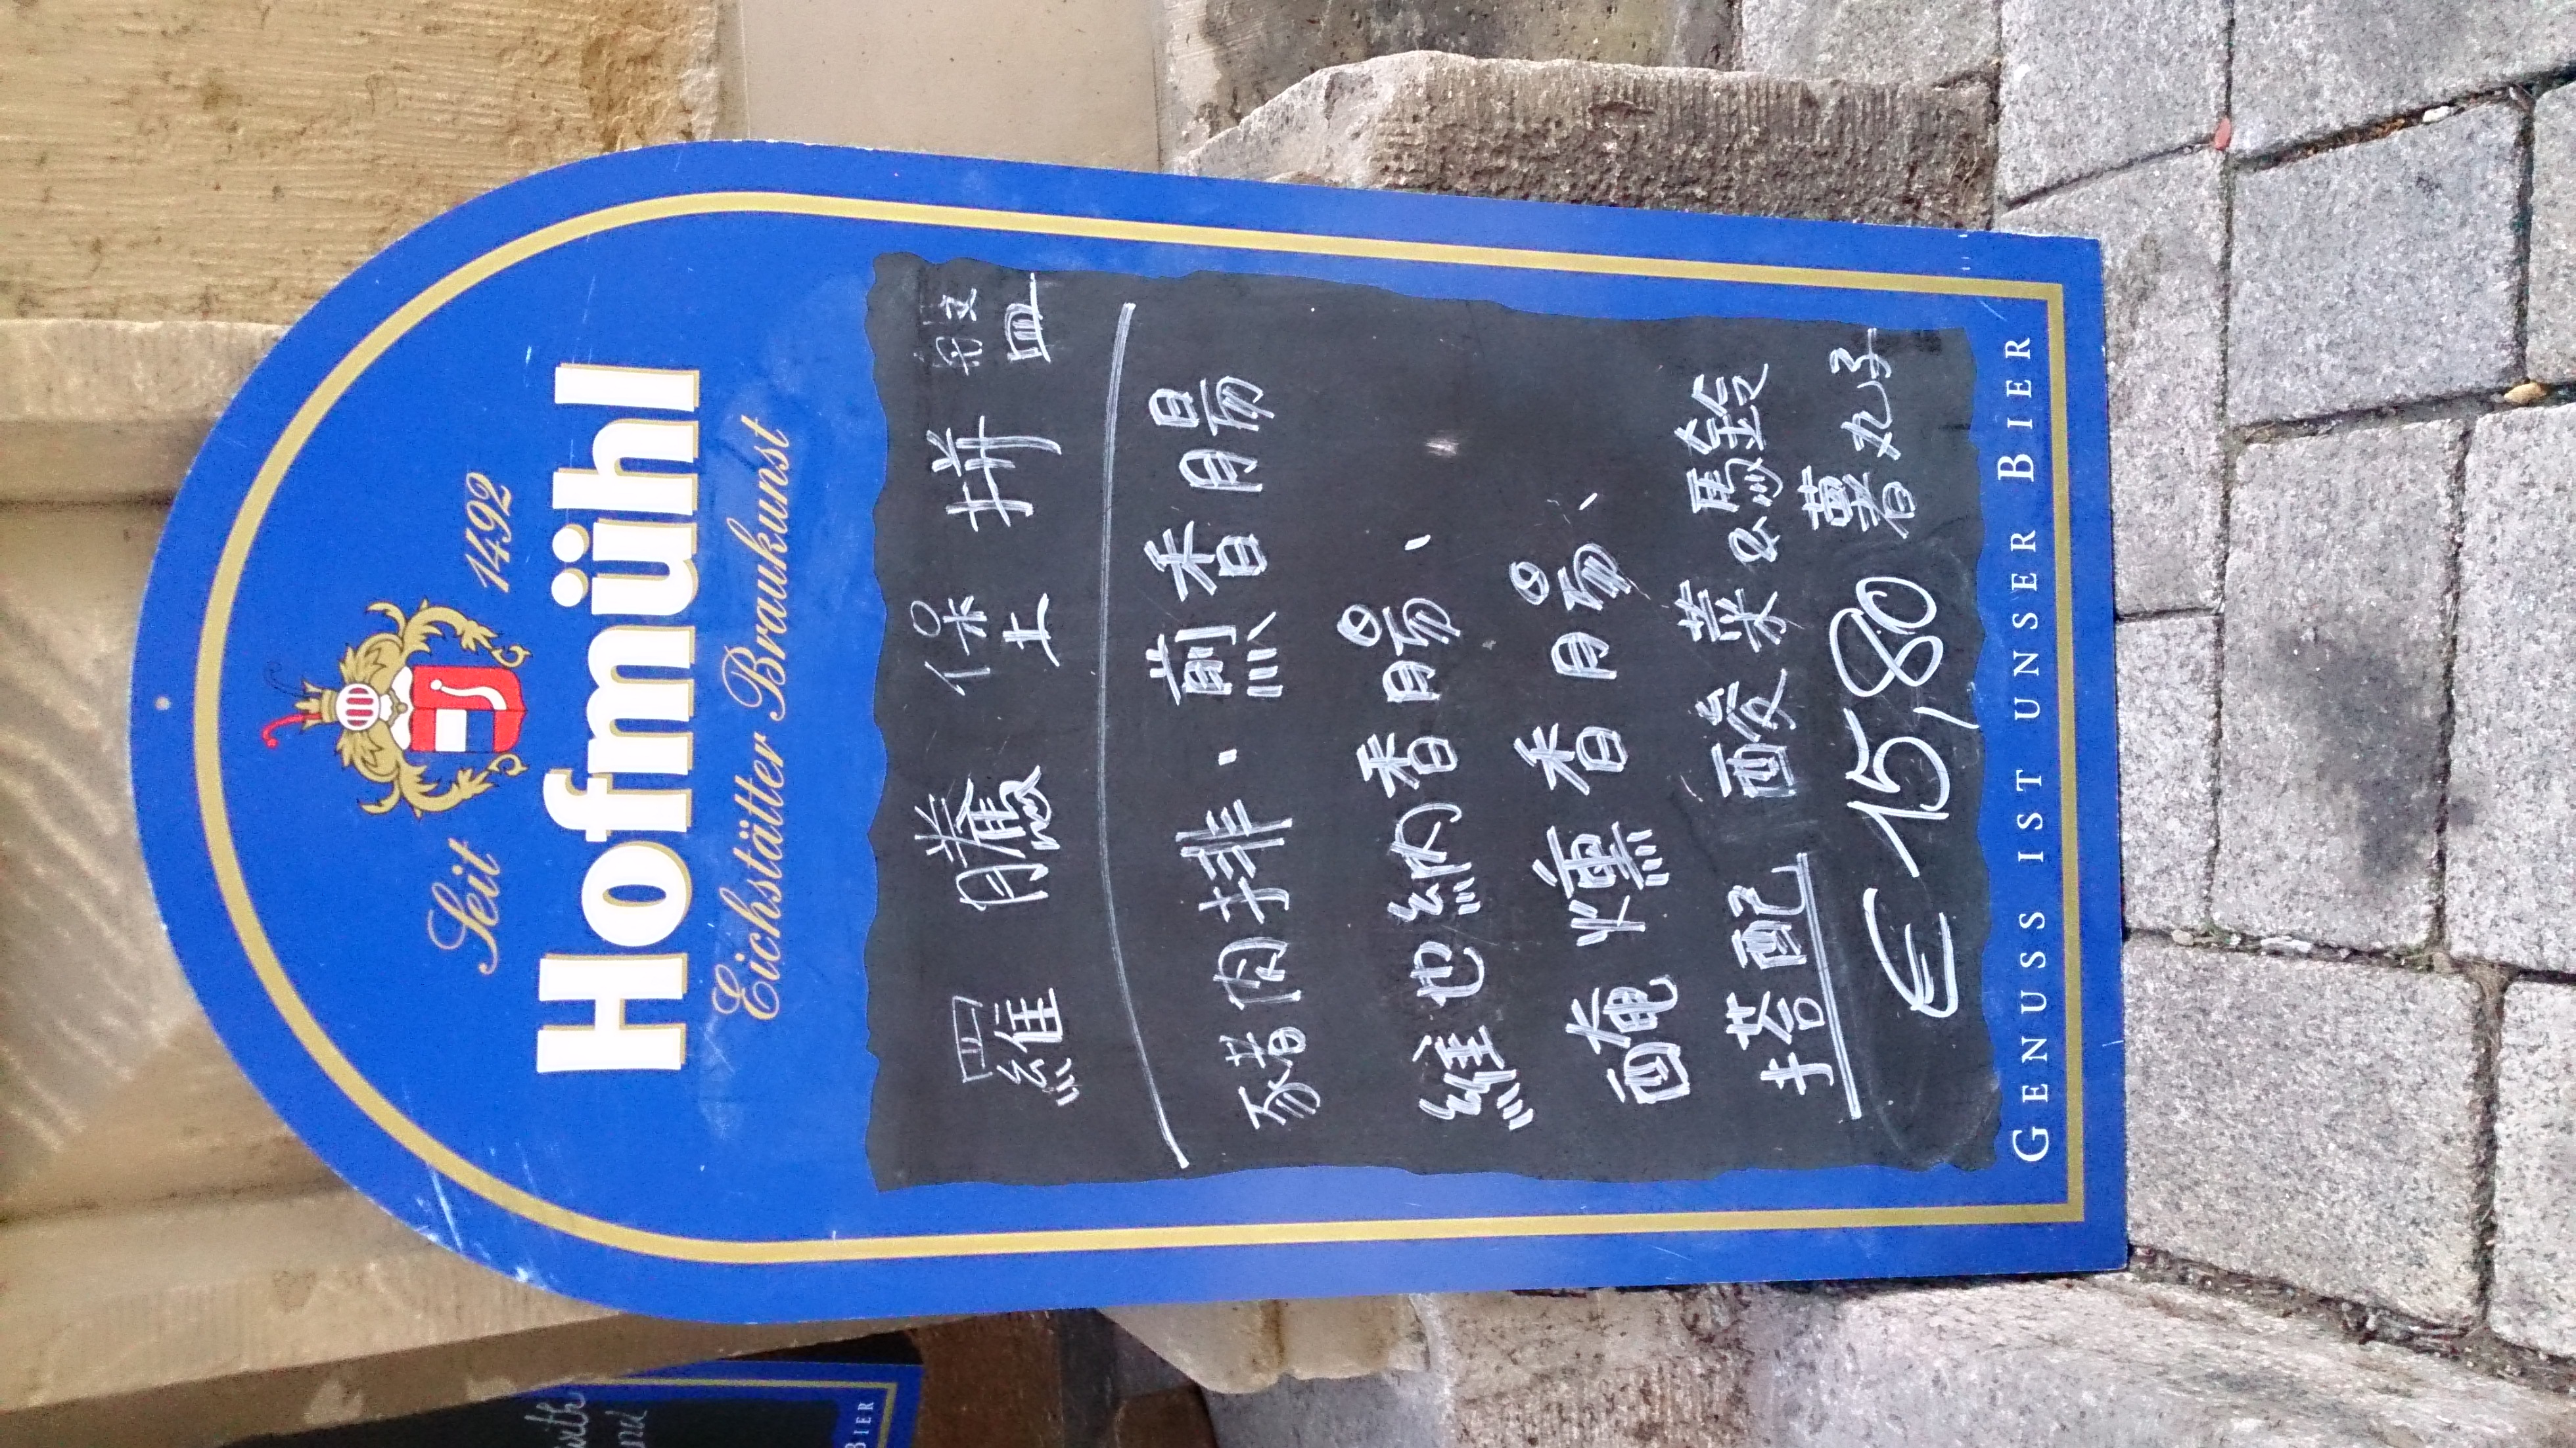 Seit 1492
Hofmühl
Eichstätter Braukunst
羅騰堡拼盤
豬肉排、煎香腸
維也納香腸、
醃燻香腸、
搭配 酸菜&馬鈴
薯丸子
€ 15,80
GENUSS IST UNSER BIER
with
BIER